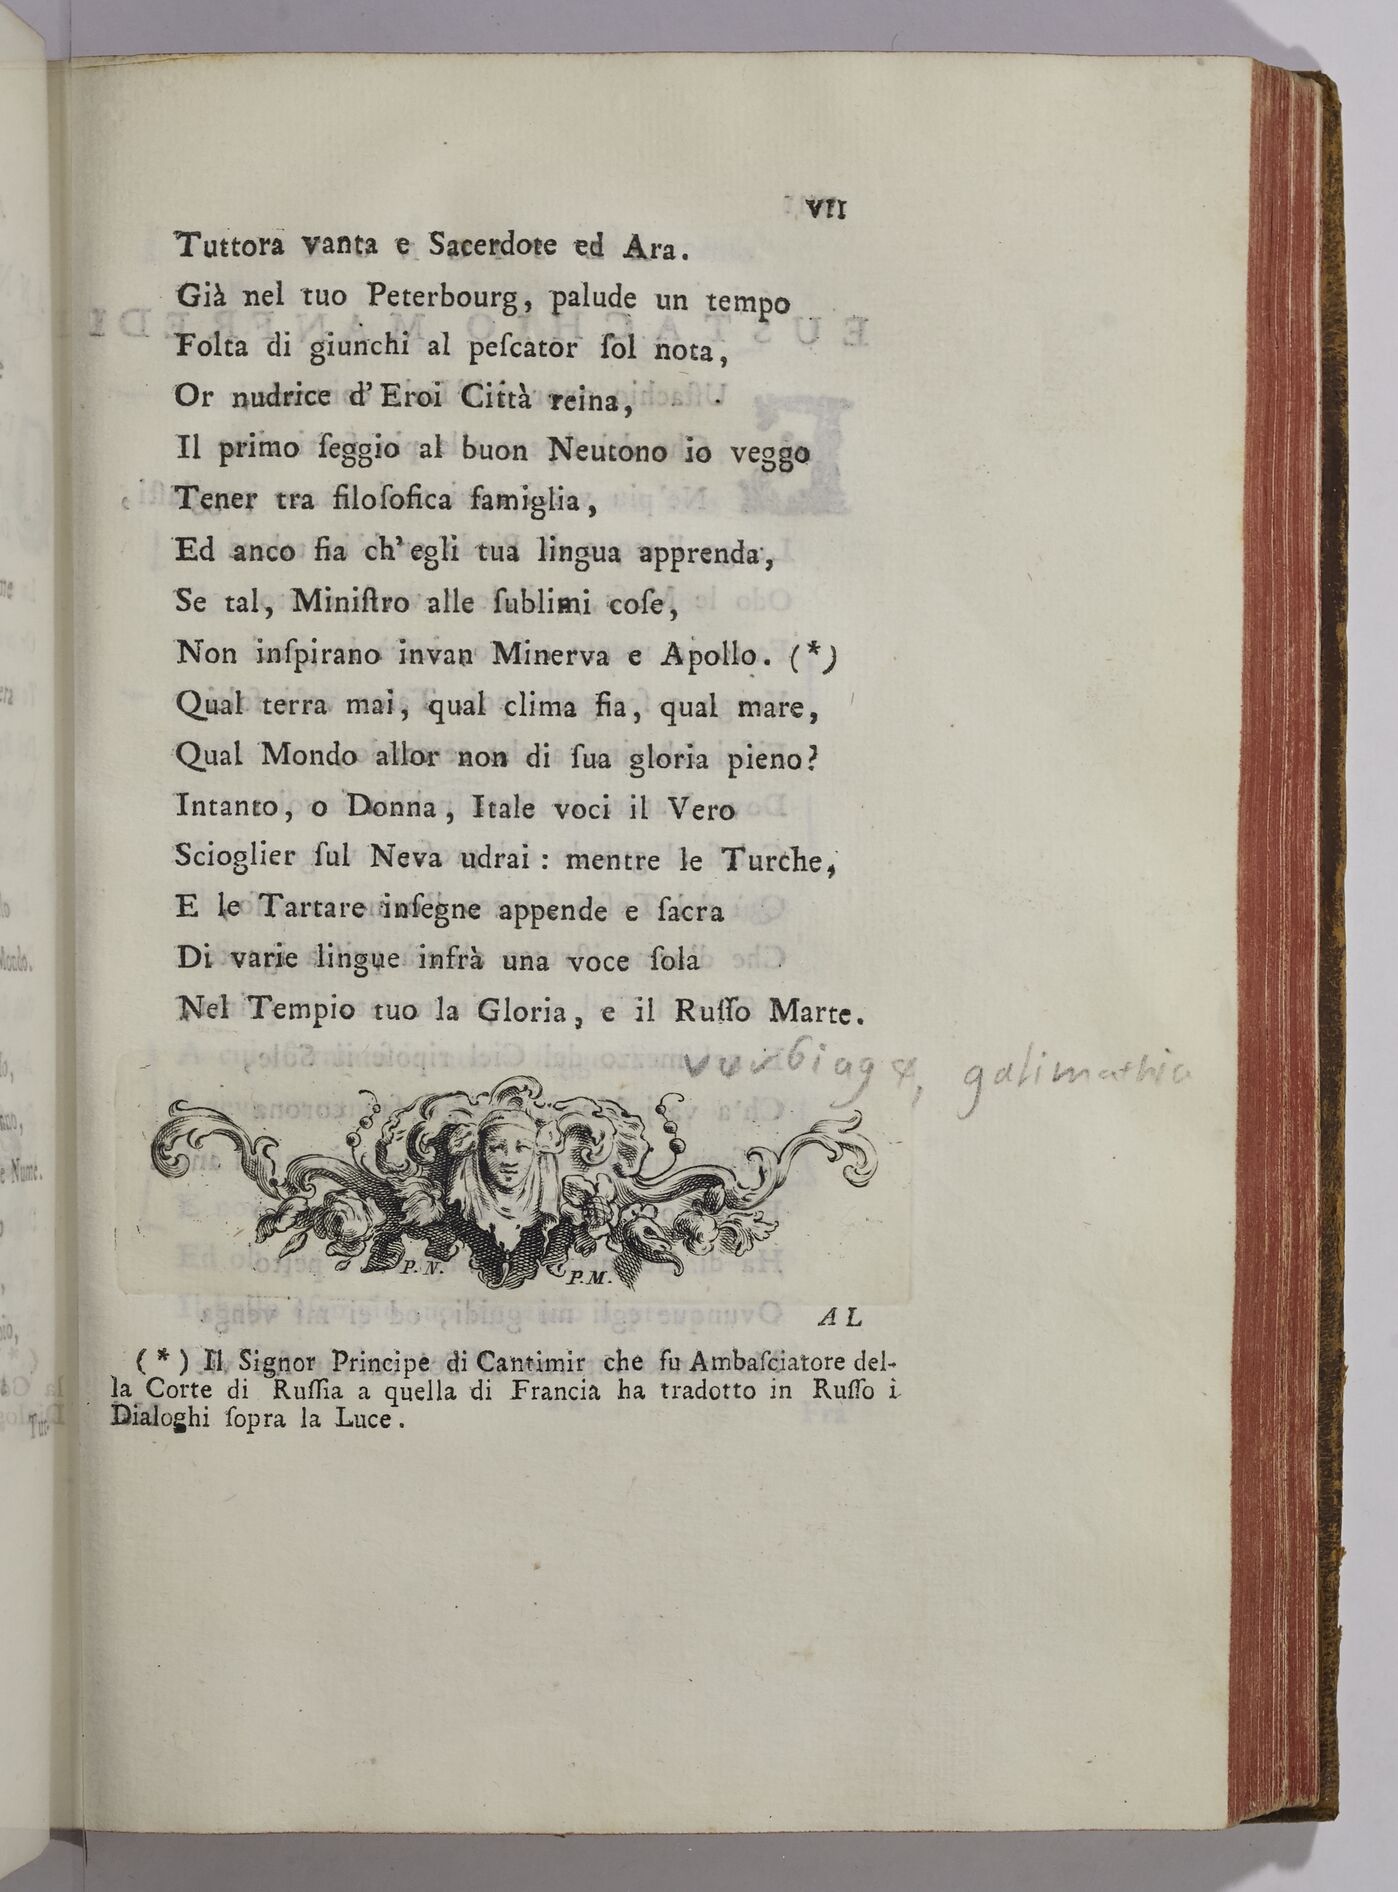 VII
Tuttora vanta e Sacerdote ed Ara.
Già nel tuo Peterbourg, palude un tempo
Folta di giunchi al peſcator ſol nota,
Or nudrice d'Eroi Città reina,
Il primo ſeggio al buon Neutono io veggo
Tener tra filoſofica famiglia,
Ed anco fia ch'egli tua lingua apprenda,
Se tal, Miniſtro alle ſublimi coſe,
Non inſpirano invan Minerva e Apollo. (*)
Qual terra mai, qual clima fia, qual mare,
Qual Mondo allor non di ſua gloria pieno?
Intanto, o Donna, Itale voci il Vero
Scioglier ſul Neva udrai: mentre le Turche,
E le Tartare inſegne appende e ſacra
Di varie lingue infrà una voce ſola
Nel Tempio tuo la Gloria, e il Ruſſo Marte.
verbiage, galimathia
P. N. P. M.
AL
(*) Il Signor Principe di Cantimir che fu Ambaſciatore del-
la Corte di Ruſſia a quella di Francia ha tradotto in Ruſſo i
Dialoghi ſopra la Luce.